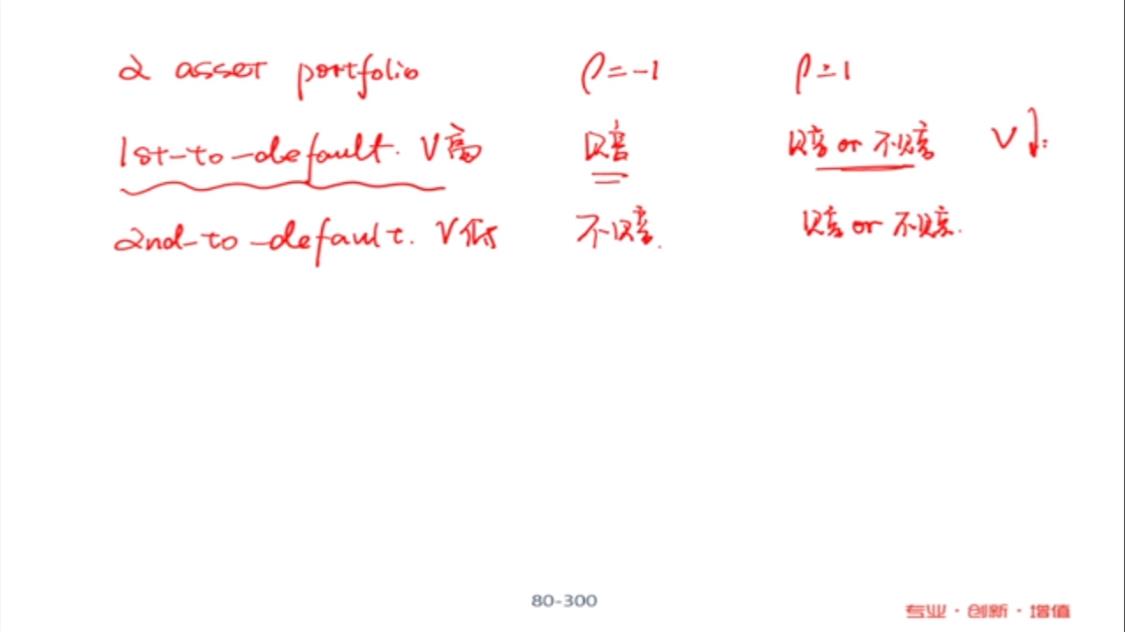 2 asset portfolio ρ=-1 ρ=1
1st-to-default. V高 赔 赔 or 不赔 V↓:
2nd-to-default. V低 不赔. 赔 or 不赔.
80-300
专业·创新·增值